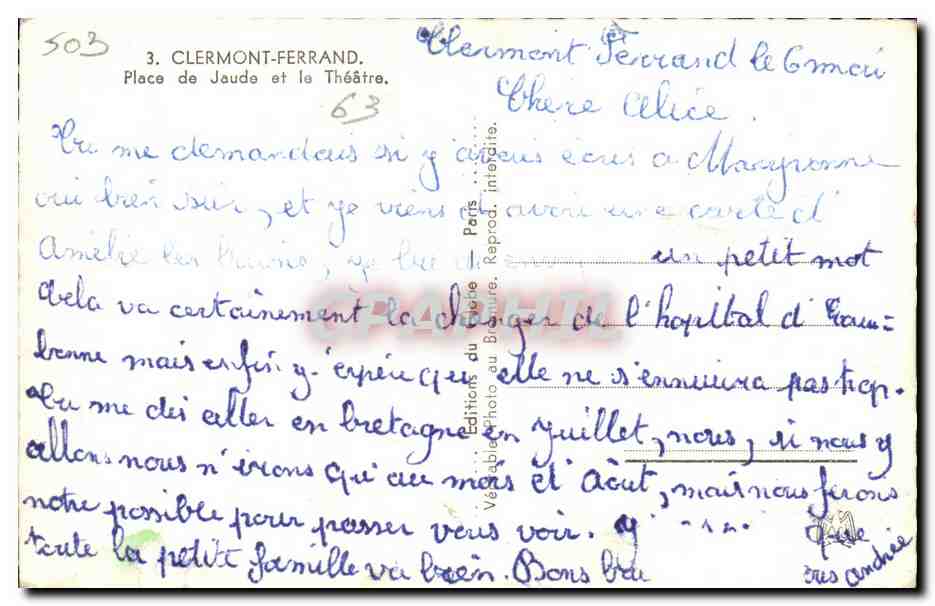 503
3. CLERMONT-FERRAND.
Place de Jaude et le Théâtre.
63
Clermont Ferrand le 6 mai
Chere Alice.
Tu me demandais si j'avais écris a Maryvonne
oui bien sur, et je viens d'avoir une carte d'
Amélie les bains, je lui ai un petit mot
Cela va certainement la changer de l'hopital d'Eau=
bonne mais enfin j'espère que elle ne s'ennuiera pas trop.
Tu me dis aller en bretagne en Juillet, nous, si nous y
allons nous n'irons qu'au mois d'Août, mais nous ferons
notre possible pour passer vous voir. que
toute la petit famille va bien. Bons
Andrée
Editions du Globe - Paris
Véritable Photo au Bromure. Reprod. interdite.
CPAPHIL